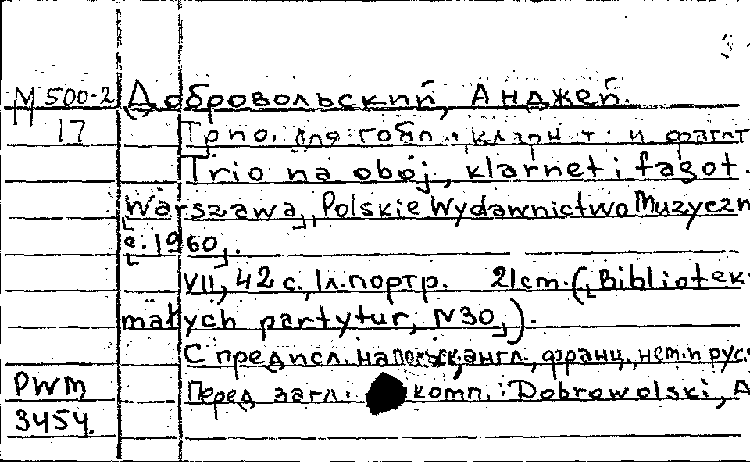 М 500-2 Добровольский, Анджей.
17 Трио для гобоя, кларнета и фагота
Trio na obój, klarnet i fagot.
Warszawa, Polskie Wydawnictwo Muzyczn
e. 1960.
VII, 42 с., 1л.портр. 21cm. (Bibliotek
małych partytur, N30).
С предисл. на польск., англ., франц., нем. и рус.
PWM Перед загл.: комп.: Dobrowolski, A
3454.